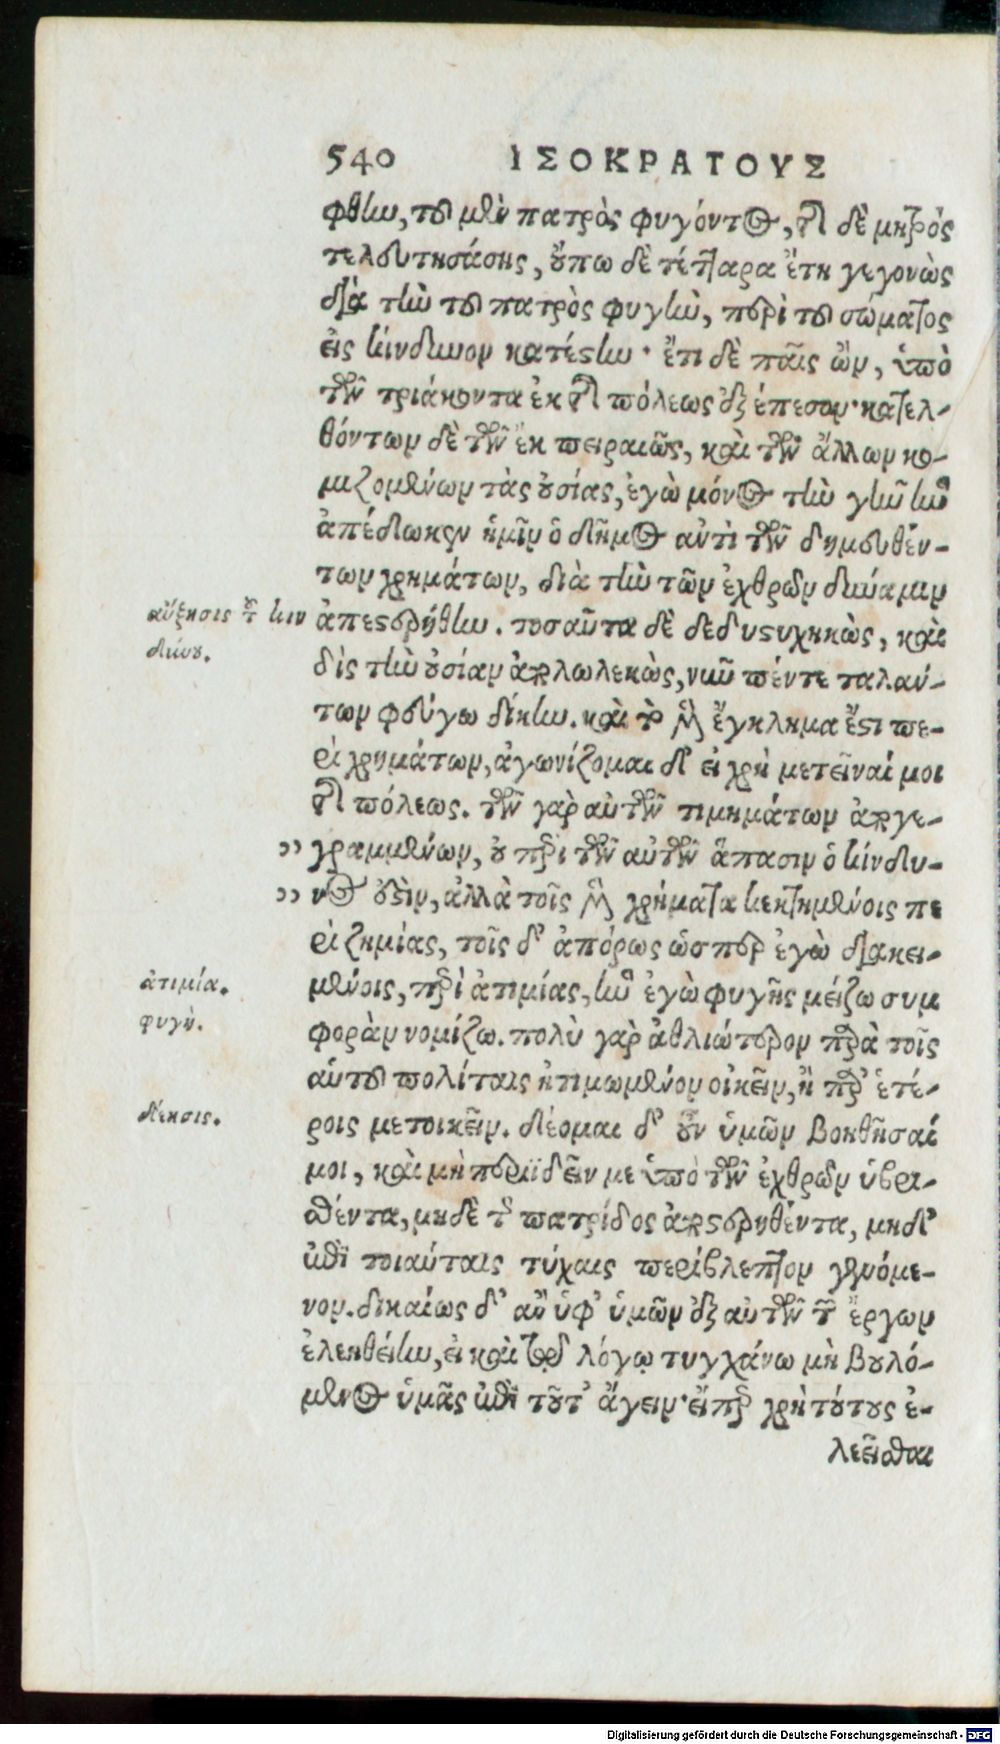 540 ΙΣΟΚΡΑΤΟΥΣ
φθην, τοῦ μὲν πατρὸς φυγόντος, τῆς δὲ μητρὸς
τελευτησάσης, οὔπω δὲ τέτταρα ἔτη γεγονὼς
διὰ τὴν τοῦ πατρὸς φυγὴν, περὶ τοῦ σώματος
εἰς κίνδυνον κατέστην· ἔτι δὲ παῖς ὢν, ὑπὸ
τῶν τριάκοντα ἐκ τῆς πόλεως ἐξέπεσον· κατελ-
θόντων δὲ τῶν ἐκ πειραιῶς, καὶ τῶν ἄλλων κο-
μιζομένων τὰς οὐσίας, ἐγὼ μόνος τὴν γῆν ἣν
ἀπέδωκεν ἡμῖν ὁ δῆμος ἀντὶ τῶν δημευθέν-
των χρημάτων, διὰ τὴν τῶν ἐχθρῶν δύναμιν
αὔξησις τοῦ κιν
δύνου.
ἀπεστερήθην. τοσαῦτα δὲ δεδυστυχηκὼς, καὶ
δὶς τὴν οὐσίαν ἀπολωλεκὼς, νῦν πέντε ταλάν-
των φεύγω δίκην. καὶ τὸ μὲν ἔγκλημα ἔστι πε-
ρὶ χρημάτων, ἀγωνίζομαι δ' εἰ χρὴ μετεῖναί μοι
τῆς πόλεως. τῶν γὰρ αὐτῶν τιμημάτων ἀπογε-
›› γραμμένων, οὐ περὶ τῶν αὐτῶν ἅπασιν ὁ κίνδυ-
›› νός ἐστιν, ἀλλὰ τοῖς μὲν χρήματα κεκτημένοις πε
ρὶ ζημίας, τοῖς δ' ἀπόρως ὥσπερ ἐγὼ διακει-
ἀτιμία.
φυγὴ.
μένοις, περὶ ἀτιμίας, ἣν ἐγὼ φυγῆς μείζω συμ
φορὰν νομίζω. πολὺ γὰρ ἀθλιώτερον παρὰ τοῖς
αὑτοῦ πολίταις ἠτιμωμένον οἰκεῖν, ἢ παρ' ἑτέ-
δέησις.
ροις μετοικεῖν. δέομαι δ' οὖν ὑμῶν βοηθῆσαί
μοι, καὶ μὴ περιϊδεῖν με ὑπὸ τῶν ἐχθρῶν ὑβρι-
σθέντα, μηδὲ τῆς πατρίδος ἀποστερηθέντα, μηδ'
ἐπὶ τοιαύταις τύχαις περίβλεπτον γενόμε-
νον. δικαίως δ' ἂν ὑφ' ὑμῶν ἐξ αὐτῶν τῶν ἔργων
ἐλεηθείην, εἰ καὶ τῷ λόγῳ τυγχάνω μὴ βουλό-
μενος ὑμᾶς ἐπὶ τοῦτ' ἄγειν· εἴπερ χρὴ τούτους ἐ-
λεεῖσθαι
Digitalisierung gefördert durch die Deutsche Forschungsgemeinschaft - DFG